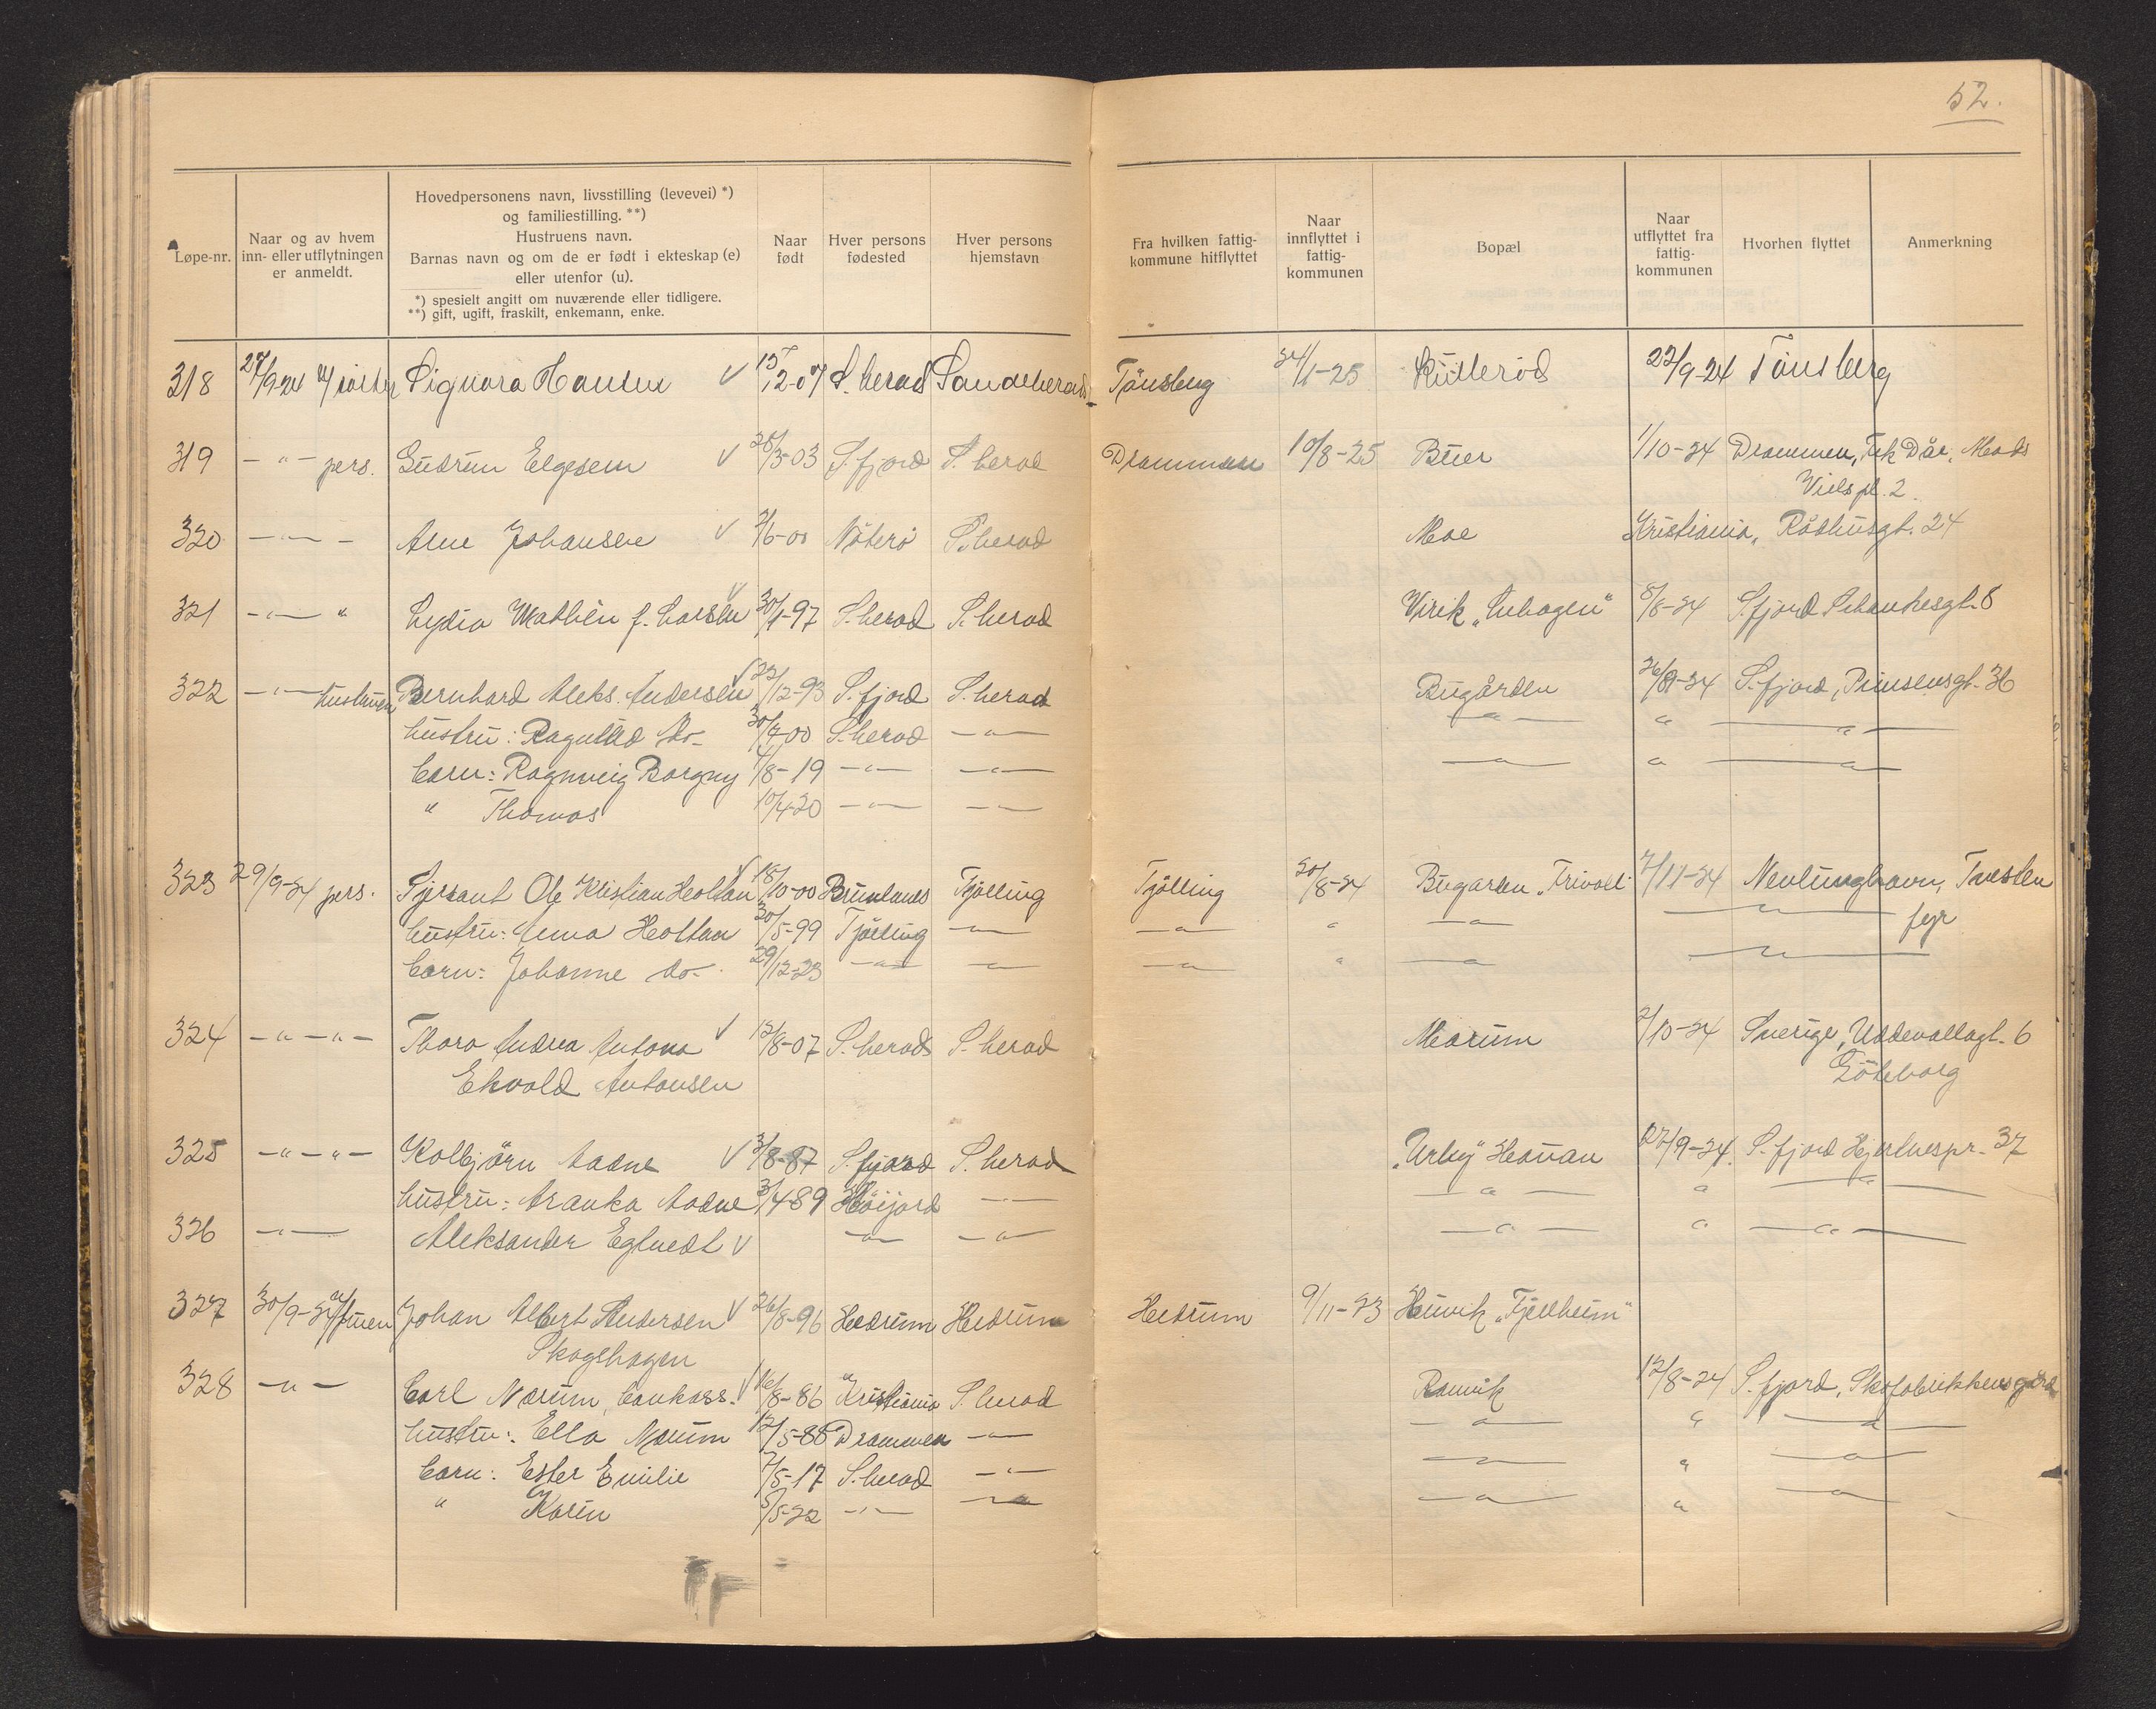 52.
Løpe-nr.
Naar og av hvem
inn- eller utflytningen
er anmeldt.
Hovedpersonens navn, livsstilling (levevei) *)
og familiestilling. **)
Hustruens navn.
Barnas navn og om de er født i ekteskap (e)
eller utenfor (u).
*) spesielt angitt om nuværende eller tidligere.
**) gift, ugift, fraskilt, enkemann, enke.
Naar
født
Hver persons
fødested
Hver persons
hjemstavn
Fra hvilken fattig-
kommune hitflyttet
Naar
innflyttet i
fattig-
kommunen
Bopæl
Naar
utflyttet fra
fattig-
kommunen
Hvorhen flyttet
Anmerkning
318 27/9-24 Signora Hansen √ 12-07 S. herad Sandeherad Tönsberg 24/1-25 Kulleröd 22/9-24 Tönsberg
319 -"- pers. Gudrun Elgesem √ 28/3-03 S.fjord S. herad Drammen 10/8-25 Buer 1/10-24 Drammen,
Vielspl. 2
320 -"- Arne Johansen √ 2/6-00 Nöterö S. herad Moe Kristiania, Rådhusgt. 24
321 -"- " Lydia Mathea f. Larsen √ 30/1-97 S. herad S. herad Virik 5/8-24 S.fjord Schankesgt. 8
322 -"- hustruen Bernhard Aleks. Andersen √ 22/12-93 S.fjord S. herad Bugården 26/9-24 S.fjord, Prinsensgt. 36
hustru: Ragnhild do- 30/7-00 S. herad -"- -"- " -"-
barn: Ragnveig Borgny 4/8-19 -"- -"- -"- " -"-
" Thomas 10/4-20 -"- -"-
323 29/9-24 pers. Ole Kristian Holtan √ 18/10-00 Brunlanes Tjölling Tjölling 20/8-24 Bugården „Frivoll" 7/11-24 Nevlunghavn, Tvesten
hustru: Anna Holtan 30/5-99 Tjölling -"- -"- " -"- -"- fyr
barn: Johanne do- 29/12-23 -"- -"- -"- " -"- -"-
324 -"-"- Thora Andrea Antona √ 12/8-07 S. herad S. herad Marum 2/10-24 Sverige, Uddevallagt. 6
Ekvold Antonsen Göteborg
325 -"-"- Kolbjörn Aadne √ 3/8-87 S.fjord S. herad „Urby" Hauan 27/9-24 S.fjord Hjertnespr. 37
hustru: Aranka Aadne 3/4-89 Höijord -"- -"- " -"-
326 -"- Aleksander Egtvedt √ -"- -"- -"- " -"-
327 30/9-24 Johan Albert Andersen √ 26/8-96 Hedrum Hedrum Hedrum 9/11-23 „Fjellheim"
Skogshagen
328 -"- Carl Narum, √ 16/8-86 Kristiania S. herad Ranvik 12/8-24 S.fjord, Skofabrikkens gård
hustru: Ella Narum 12/5-88 Drammen -"- -"- " -"-
barn: Ester Emilie 7/5-17 S. herad -"- -"- " -"-
" Karin 5/5-22 -"- -"- -"- " -"-